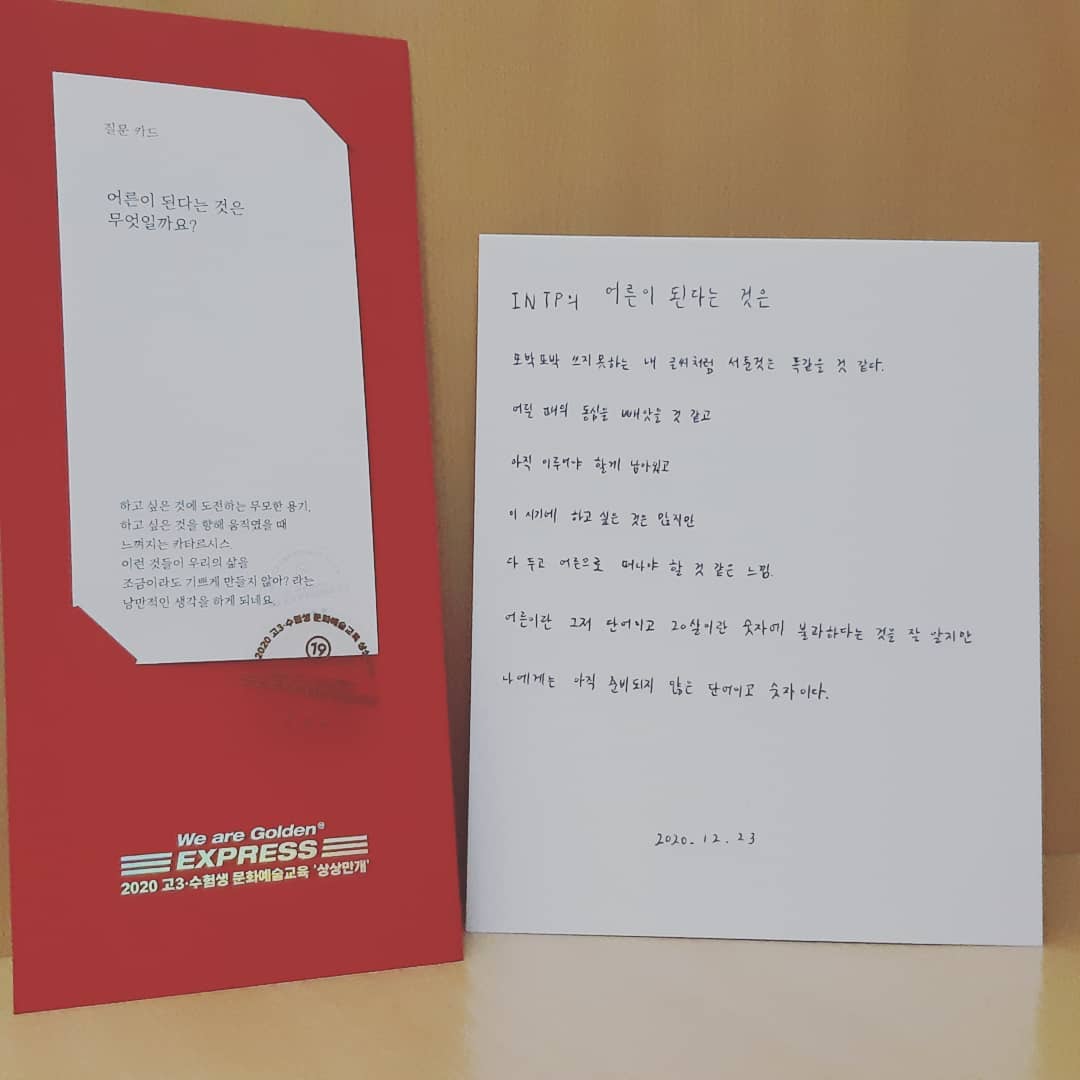 질문 카드
어른이 된다는 것은
무엇일까요?
하고 싶은 것에 도전하는 무모한 용기.
하고 싶은 것을 향해 움직였을 때
느껴지는 카타르시스.
이런 것들이 우리의 삶을
조금이라도 기쁘게 만들지 않아? 라는
낭만적인 생각을 하게 되네요.
2020 고3·수험생 문화예술교육 상상
19
We are Golden®
EXPRESS
2020 고3·수험생 문화예술교육 '상상만개'
INTP의 어른이 된다는 것은
또박또박 쓰지 못하는 내 글씨처럼 서툰것는 똑같을 것 같다.
어릴 때의 동심을 빼앗을 것 같고
아직 이루어야 할게 남아있고
이 시기에 하고 싶은 것은 많지만
다 두고 어른으로 떠나야 할 것 같은 느낌.
어른이란 그저 단어이고 20살이란 숫자에 불과하다는 것을 잘 알지만
나에게는 아직 준비되지 않은 단어이고 숫자이다.
2020. 12. 23